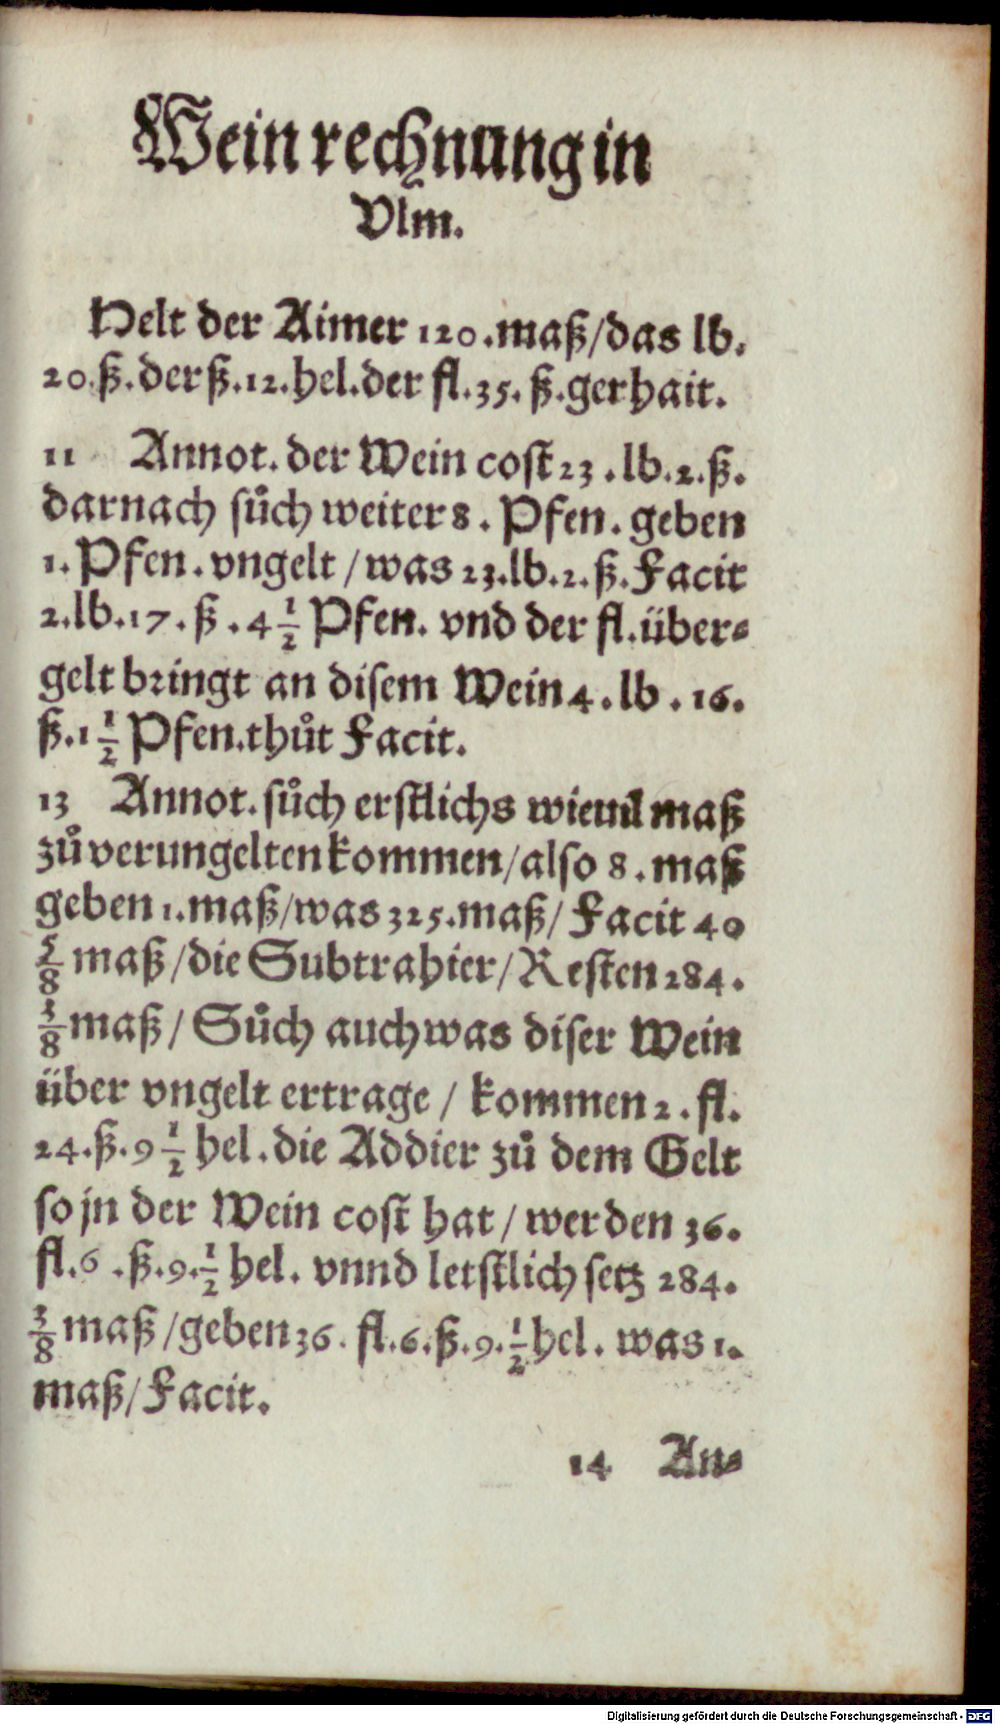 Wein rechnung in
Vlm.
Helt der Aimer 120. maß/das lb.
20.ß.der ß.12.hel.der fl.35. ß.gerhait.
11 Annot. der Wein cost 23. lb.2.ß.
darnach sůch weiter 8. Pfen. geben
1. Pfen. vngelt / was 23.lb.2.ß. Facit
2.lb.17. ß. 4 1/2 Pfen. vnd der fl.über-
gelt bringt an disem Wein 4. lb. 16.
ß.1 1/2 Pfen.thůt Facit.
13 Annot. sůch erstlichs wieuil maß
zů verungelten kommen/also 8. maß
geben 1.maß/was 325.maß/ Facit 40
5/8 maß/die Subtrahier/Resten 284.
3/8 maß/ Sůch auch was diser Wein
über vngelt ertrage / kommen 2. fl.
24.ß.9 1/2 hel. die Addier zů dem Gelt
so jn der Wein cost hat / werden 36.
fl.6 .ß.9.1/2 hel. vnnd letstlich setz 284.
3/8 maß/geben 36. fl.6.ß.9.1/2 hel. was 1.
maß/Facit.
14 An-
Digitalisierung gefördert durch die Deutsche Forschungsgemeinschaft - DFG